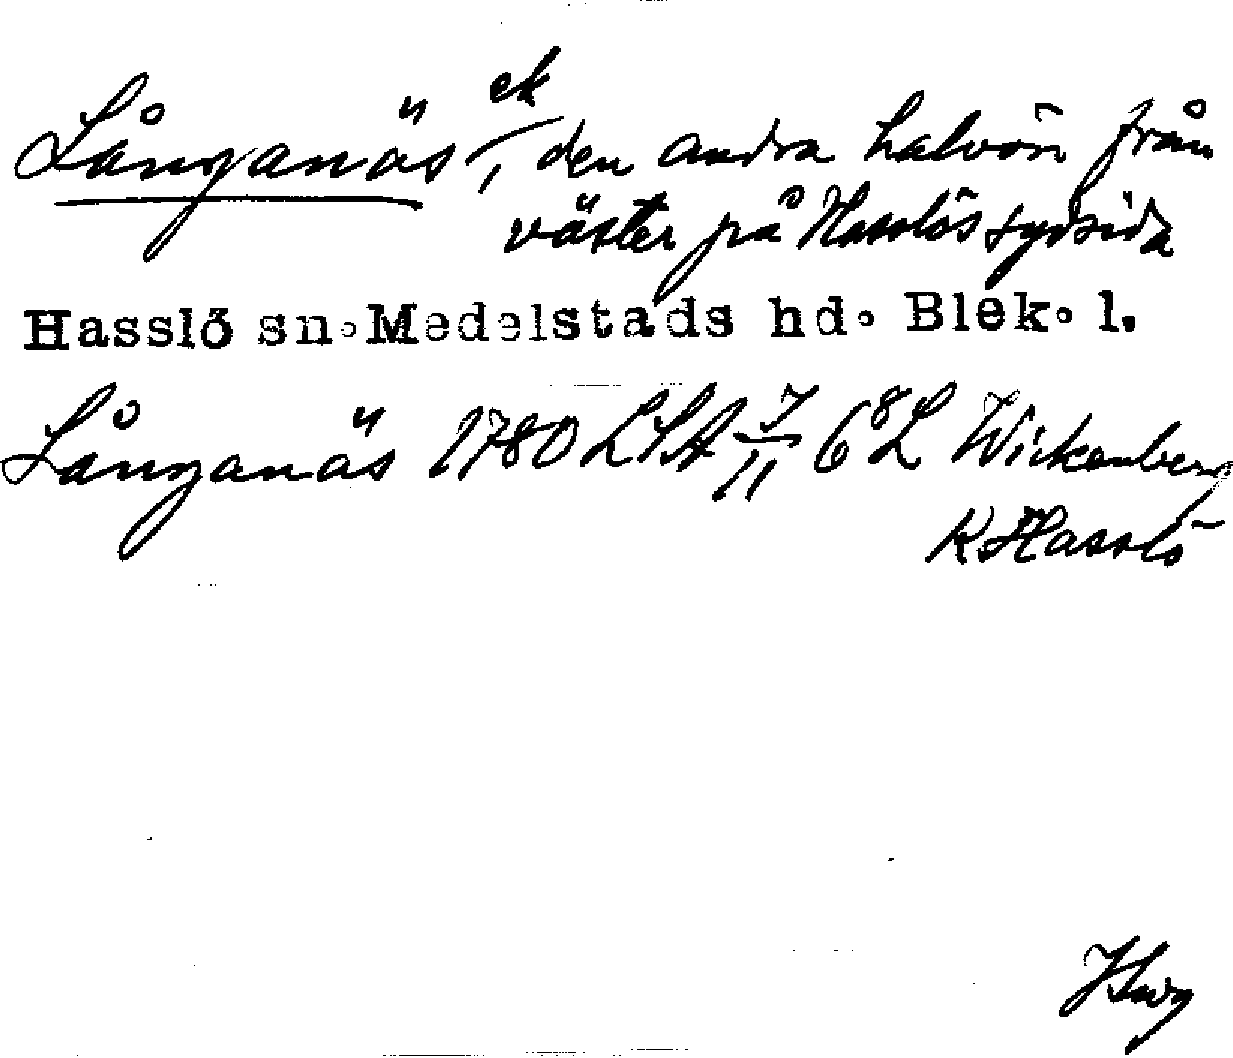 Långanäs ek, den andra halvön från
väster på Hasslös sydsida
Hasslö sn. Medelstads hd. Blek. l.
Långanäs 1780 LSA 7/11 6 8 L Wickenberg
K Hasslö